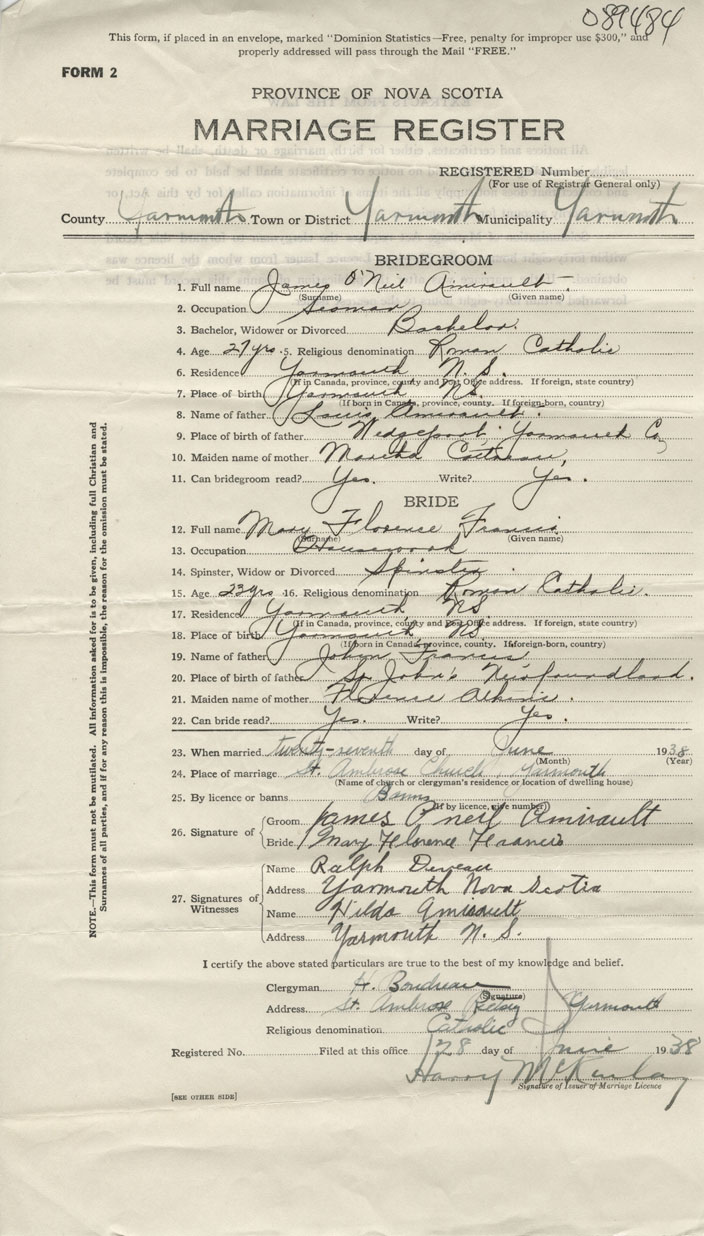 089484
This form, if placed in an envelope, marked "Dominion Statistics—Free, penalty for improper use $300," and
properly addressed will pass through the Mail "FREE."
FORM 2
PROVINCE OF NOVA SCOTIA
MARRIAGE REGISTER
REGISTERED Number
(For use of Registrar General only)
County Yarmouth Town or District Yarmouth Municipality Yarmouth
BRIDEGROOM
1. Full name James O'Neil Amirault
(Surname) (Given name)
2. Occupation Seaman
3. Bachelor, Widower or Divorced Bachelor.
4. Age 27 yrs. 5. Religious denomination Roman Catholic
6. Residence Yarmouth N. S.
(If in Canada, province, county and Post Office address. If foreign, state country)
7. Place of birth Yarmouth NS.
(If born in Canada, province, county. If foreign-born, country)
8. Name of father Louis Amirault.
9. Place of birth of father Wedgeport, Yarmouth Co,
10. Maiden name of mother Martha
11. Can bridegroom read? Yes. Write? Yes.
BRIDE
12. Full name Mary Florence Francis
(Surname) (Given name)
13. Occupation
14. Spinster, Widow or Divorced Spinster.
15. Age 23 yrs 16. Religious denomination Roman Catholic.
17. Residence Yarmouth, NS.
(If in Canada, province, county and Post Office address. If foreign, state country)
18. Place of birth Yarmouth, NS.
(If born in Canada, province, county. If foreign-born, country)
19. Name of father Francis,
20. Place of birth of father St. John's Newfoundland.
21. Maiden name of mother Florence
22. Can bride read? Yes. Write? Yes.
23. When married twenty-seventh day of June 1938
(Month) (Year)
24. Place of marriage St. Ambrose Church, Yarmouth
(Name of church or clergyman's residence or location of dwelling house)
25. By licence or banns Banns
(If by licence, give number)
26. Signature of
Groom James O'neil Amirault
Bride Mary Florence Francis
27. Signatures of Witnesses
Name Ralph Deveau
Address Yarmouth Nova Scotia
Name Hilda Amirault
Address Yarmouth N. S.
I certify the above stated particulars are true to the best of my knowledge and belief.
Clergyman H. Boudreau
(Signature)
Address St. Ambrose Yarmouth
Religious denomination Catholic
Registered No. Filed at this office 28 day of June 1938
Harry McKinlay
Signature of Issuer of Marriage Licence
[SEE OTHER SIDE]
NOTE.—This form must not be mutilated. All information asked for is to be given, including full Christian and
Surnames of all parties, and if for any reason this is impossible, the reason for the omission must be stated.